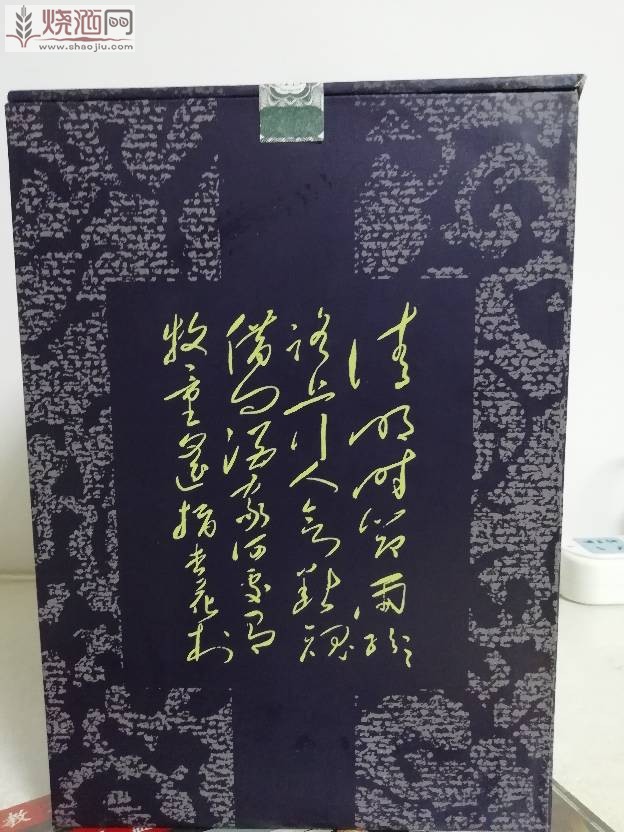 烧酒网
www.shaojiu.com
清明时节雨纷纷
路上行人欲断魂
借问酒家何处有
牧童遥指杏花村
教